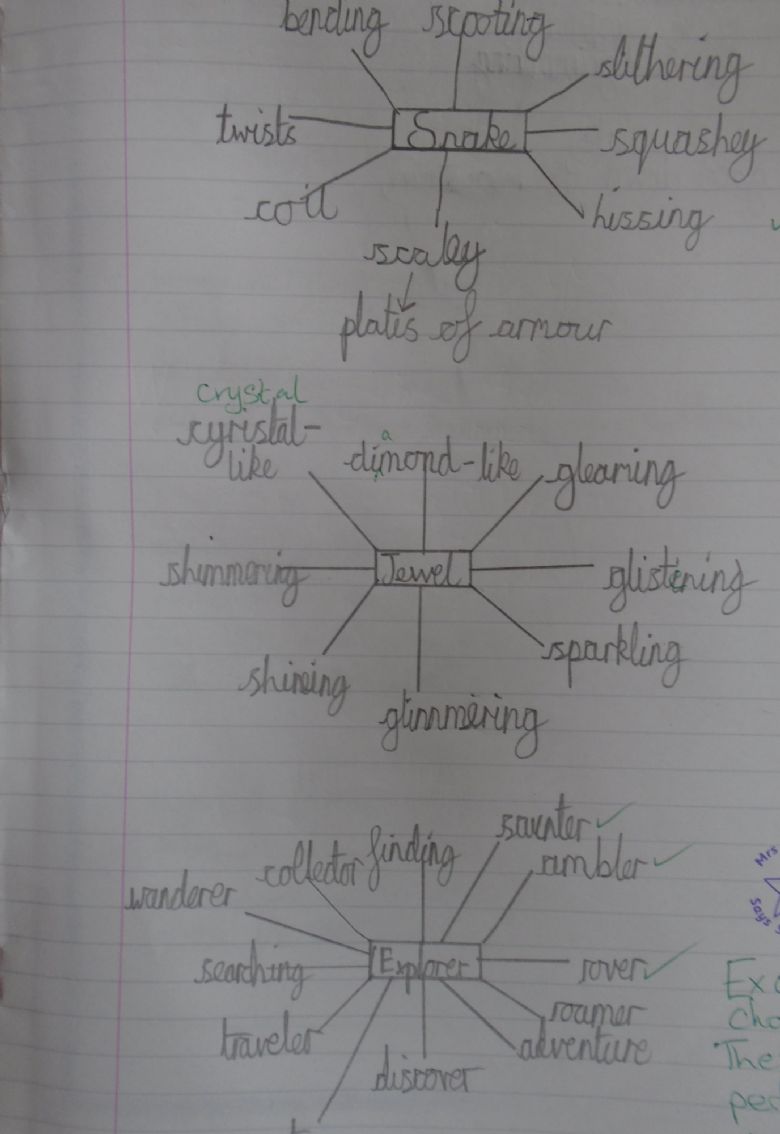 bending scooting
slithering
twists Snake squashey
coil hissing
scaley
plates of armour
crystal
cyristal-
like
a
dimond-like gleaming
shimmering Jewel glistening
sparkling
shining
glimmering
saunter
collector finding rambler
wanderer
Mrs
says
searching Explorer rover
roamer
traveler adventure
discover
The